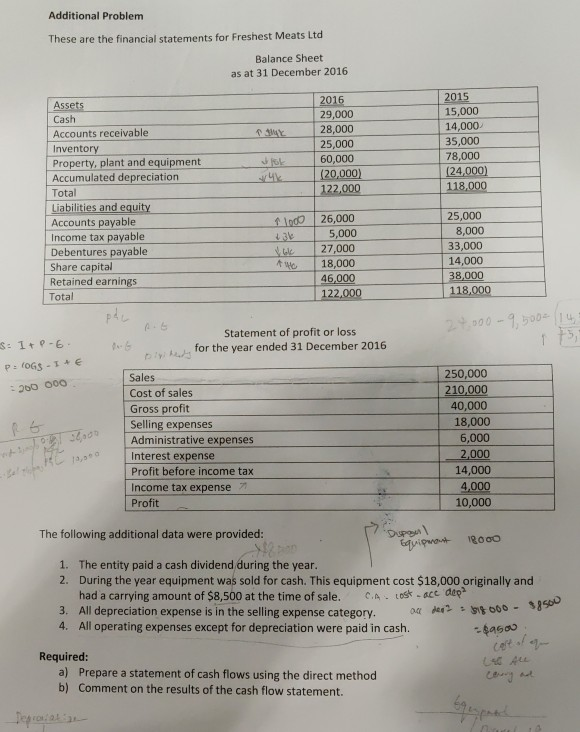 Additional Problem
These are the financial statements for Freshest Meats Ltd
Balance Sheet
as at 31 December 2016
Assets 2016 2015
Cash 29,000 15,000
Accounts receivable 28,000 14,000
Inventory 25,000 35,000
Property, plant and equipment 60,000 78,000
Accumulated depreciation ↓4k (20,000) (24,000)
Total 122,000 118,000
Liabilities and equity
Accounts payable ↑1000 26,000 25,000
Income tax payable ↓3k 5,000 8,000
Debentures payable ↓6k 27,000 33,000
Share capital ↑4k 18,000 14,000
Retained earnings 46,000 38,000
Total 122,000 118,000
Statement of profit or loss
for the year ended 31 December 2016
S = I + P - E.
P = COGS - I + E
= 200 000
Sales 250,000
Cost of sales 210,000
Gross profit 40,000
Selling expenses 18,000
Administrative expenses 6,000
Interest expense 2,000
Profit before income tax 14,000
Income tax expense 4,000
Profit 10,000
The following additional data were provided:
Disposal
Equipment 18000
1. The entity paid a cash dividend during the year.
2. During the year equipment was sold for cash. This equipment cost $18,000 originally and
had a carrying amount of $8,500 at the time of sale. C.A. cost - acc dep²
3. All depreciation expense is in the selling expense category. acc dep² = $18 000 - $8500
4. All operating expenses except for depreciation were paid in cash. = $9500
Required:
a) Prepare a statement of cash flows using the direct method
b) Comment on the results of the cash flow statement.
Depreciation
Equipment